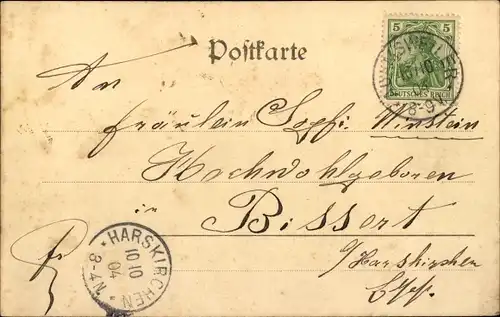 Postkarte
5 5
DEUTSCHES REICH
8-9V
An
Fräulein Sophi Winstein
Hochwohlgeboren
in
Bissert
b/Harskirchen
Els.
* HARSKIRCHEN *
10 10
04
3-4 N